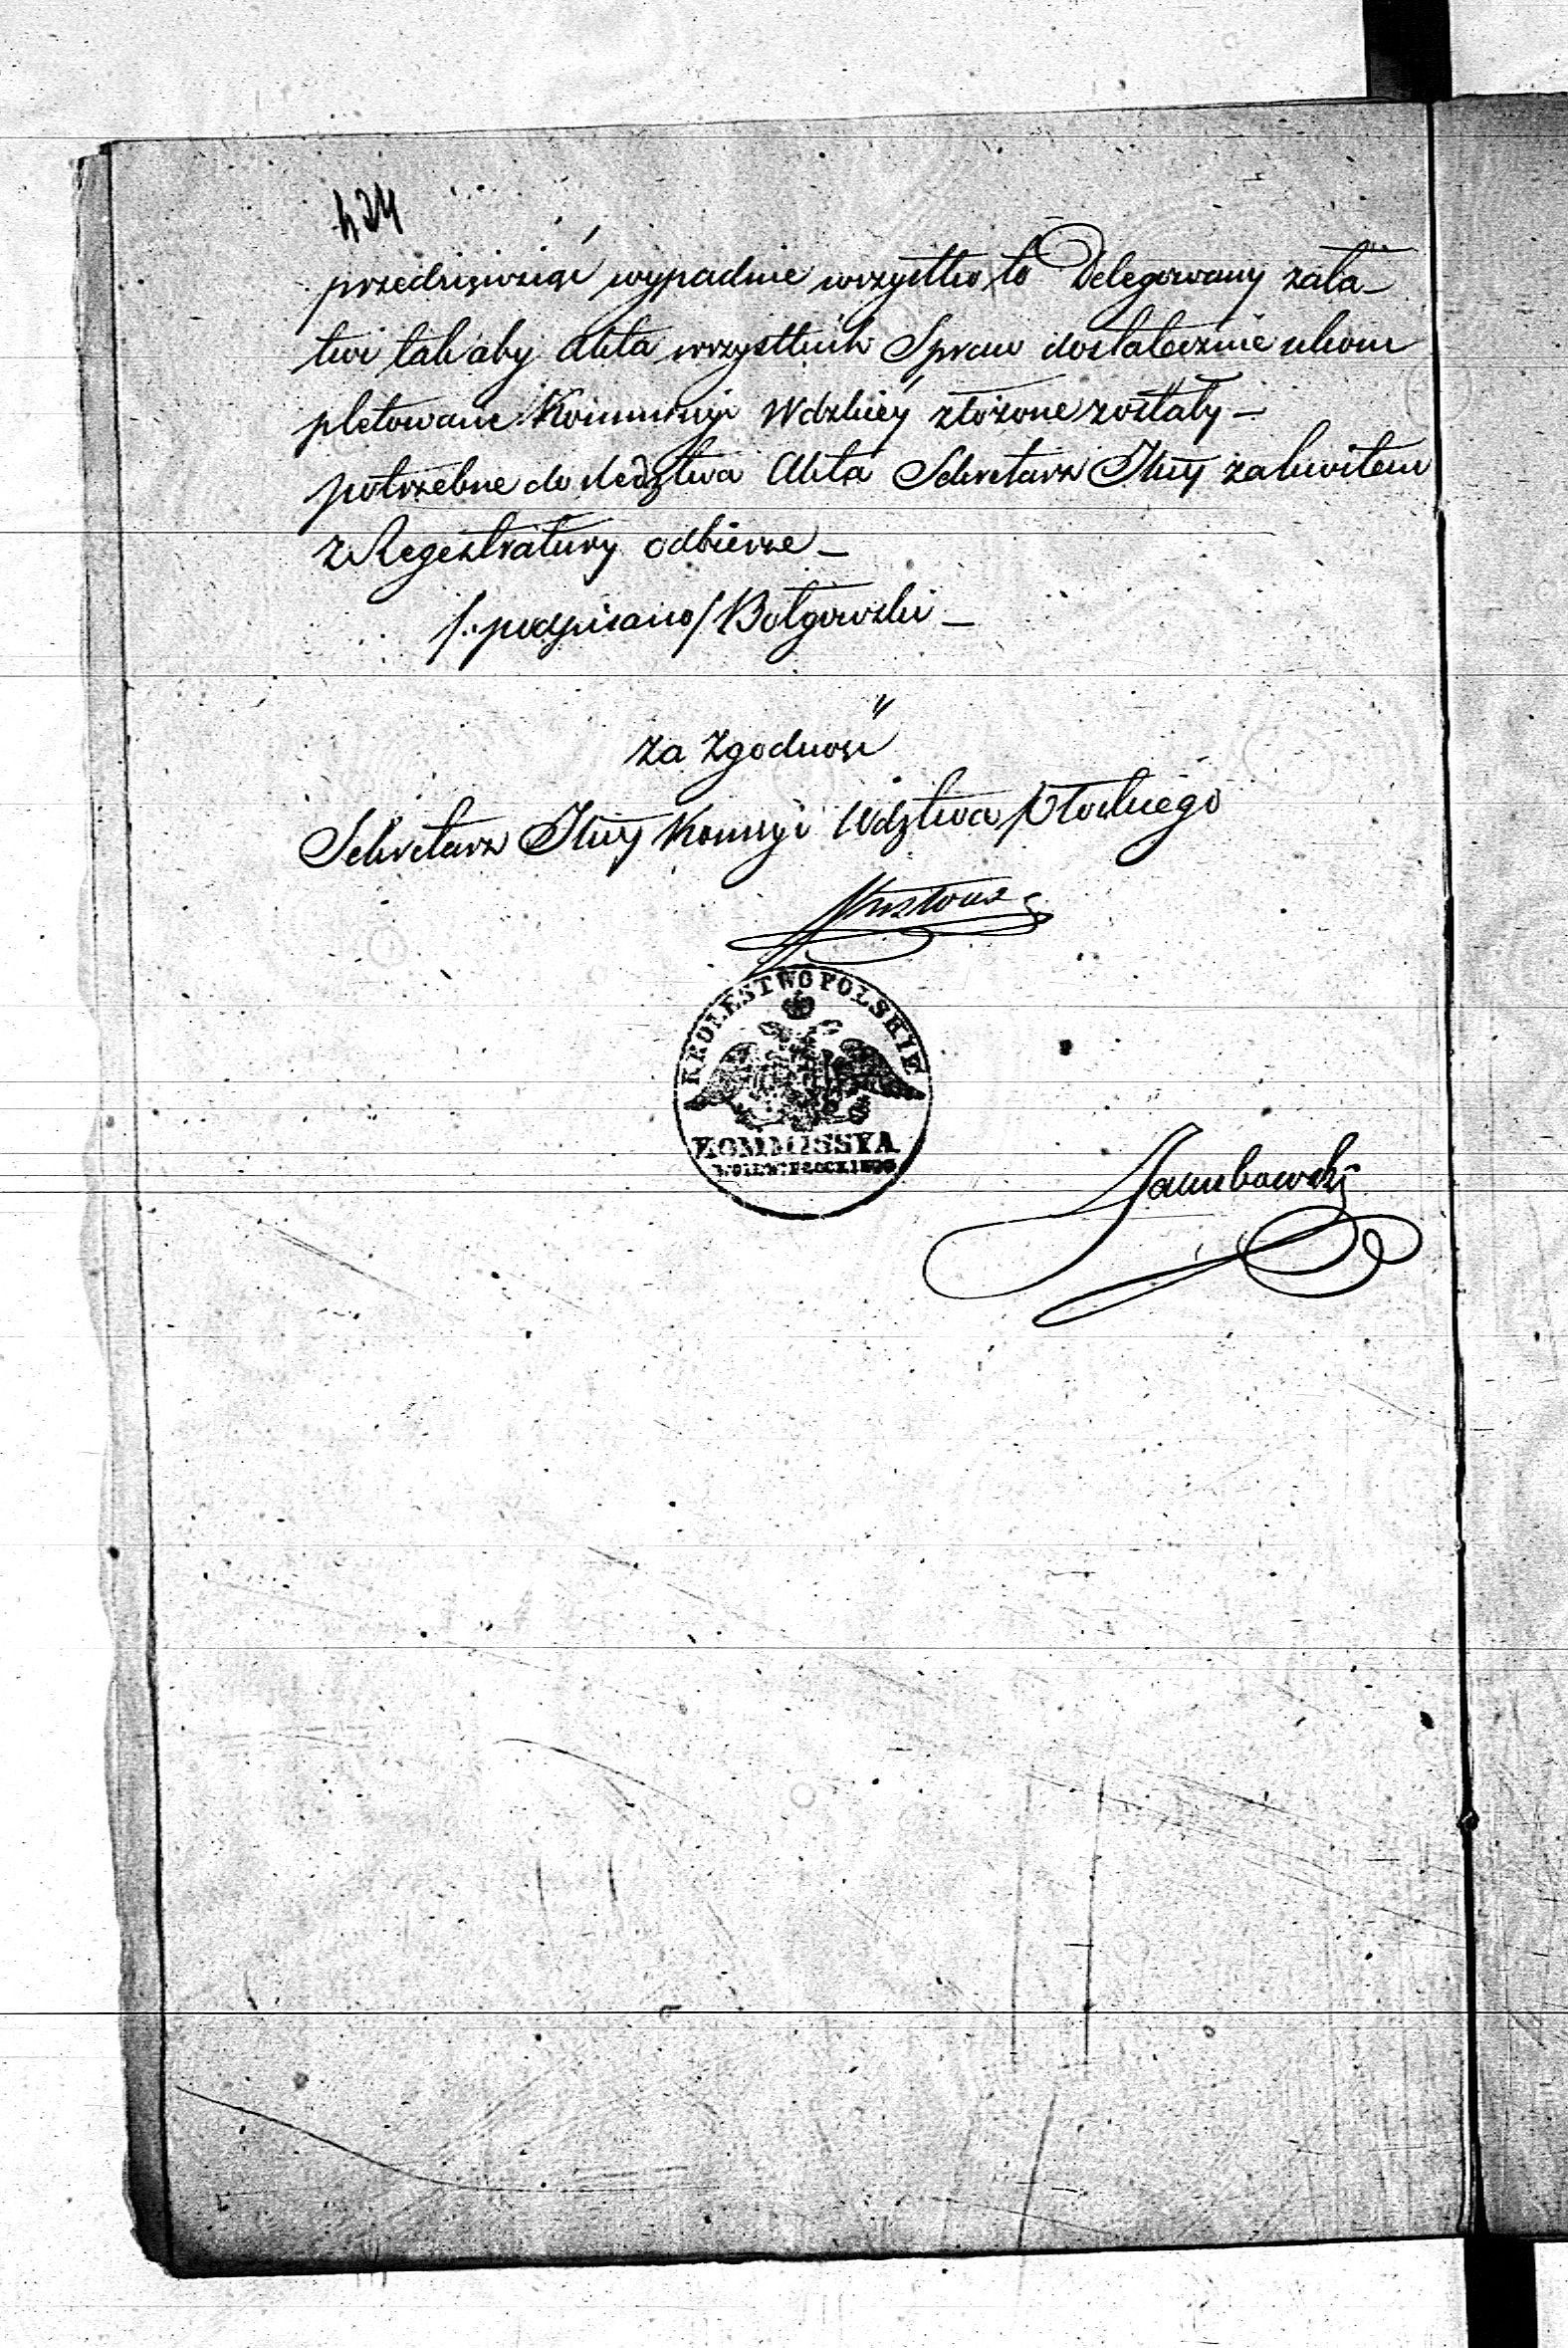 424
przedsięwziąć wypadnie wszystko to Delegowany zała-
twi tak aby Akta wszystkich Spraw dostatecznie ukom
pletowane Kommissyi Wdzkiéy złożone zostały -
potrzebne do śledztwa Akta Sekretarz Jlny za kwitem
z Registratury odbierze -
/: podpisano / Bołgowski -
Za Zgodność
Sekretarz Jlny Kommyi Wdztwa Płockiego
KROLESTWO POLSKIE
KOMMISSYA
WOIEW: PŁOCKIEGO
Jakubowski